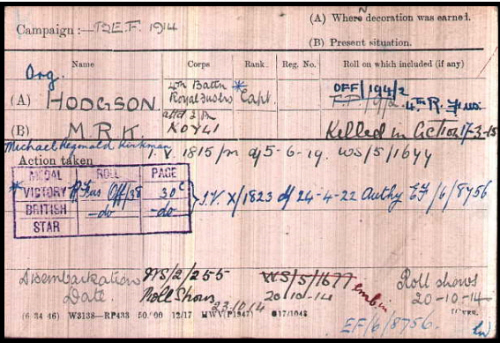 (A) Where decoration was earned.
Campaign :— B.E.F. 1914
(B) Present situation.
Name Corps Rank. Reg. No. Roll on which included (if any)
Org. 4th Battn * OFF/194/2
(A) HODGSON. Royal Fusrs Capt. 4th R. Fus
attd 2/
(B) M.R.K. KOYLI Killed in Action 17-3-15
Michael Reginald Kirkman
Action taken I.V. 1815/ d/5-6-19. WS/5/1677
MEDAL ROLL PAGE
* VICTORY R Fus Off/38 30 } I.V. X/1823 d/ 24-4-22 Authy EF/6/8756
BRITISH —do— —do—
STAR
Disembarkation WS/2/255 WS/5/1677 Roll shows
Date. Roll Shows 20/10/14 20-10-14
23/10/14
(6 34 46) W3138—RP433 12/17
EF/6/8756.